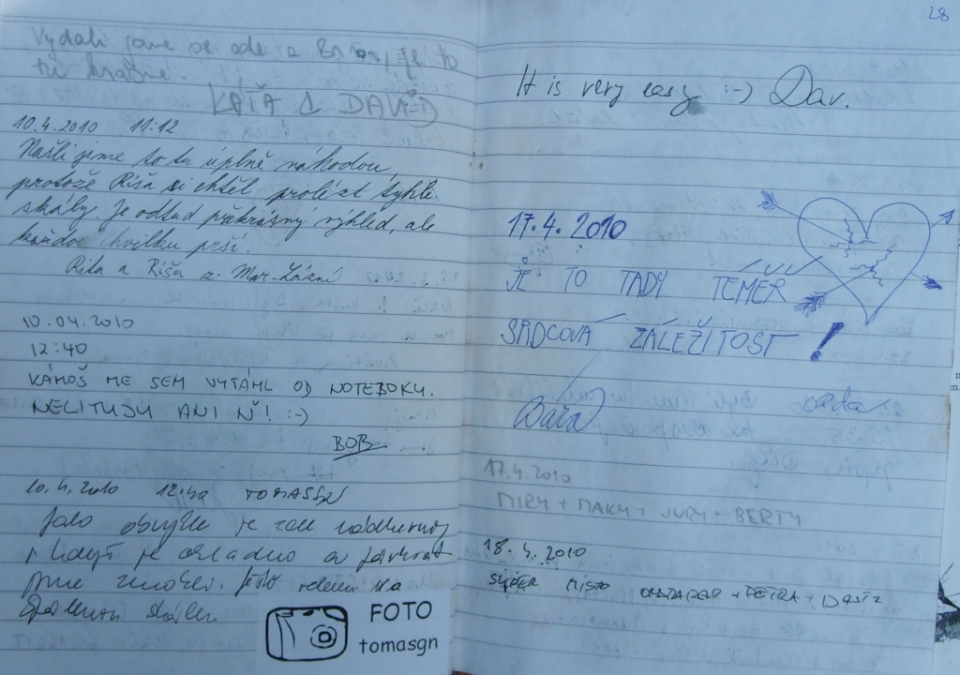 Vydali jsme se ode z Brna, je to
tu krásné.
KÁŤA & DAVID
10.4.2010 11:12
Našli jsme to tu úplně náhodou,
protože Ríša si chtěl prolézt tyhle
skály. Je odtud překrásný výhled, ale
každou chvilku prší.
Rita a Ríša z Mar. Lázní
10.04.2010
12:40
KÁMOŠ ME SEM VYTÁHL OD NOTEBOKU.
NELITUJU ANI Ň! :-)
BOB
10.4.2010 TOMASGN
Jako obvykle je zde nádherně
i když je chladno a
jsme zmoklí. Foto
FOTO
tomasgn
28
It is very easy :-) Dav.
17.4.2010
JE TO TADY TÉMĚŘ
SRDCOVÁ ZÁLEŽITOST !
Bára
17.4.2010
MIRY + MAKY + JURY + BERTY
18.4.2010
SUPER MÍSTO + PETRA +